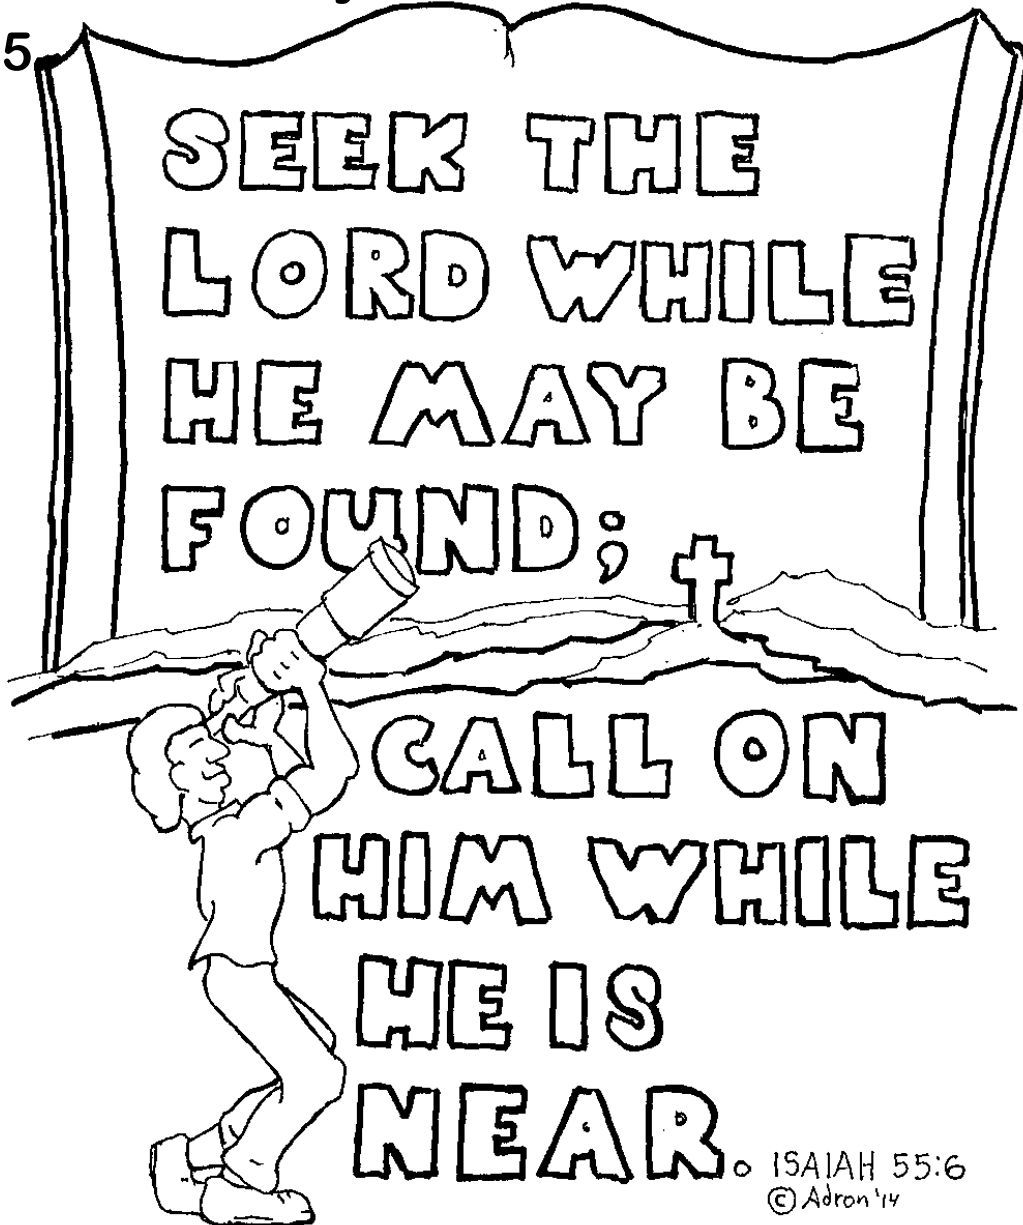 5
SEEK THE
LORD WHILE
HE MAY BE
FOUND;
CALL ON
HIM WHILE
HE IS
NEAR.
ISAIAH 55:6
© Adron '14